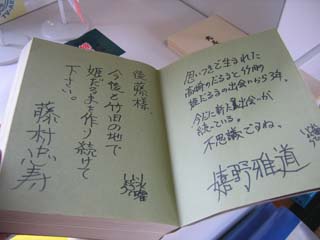 思いつきで生まれた
高崎のだるまと竹田
姫だるまの出会いから3年。
今だに新たな出会いが
続いている。
不思議ですね。
嬉野雅道
後藤様
今後も竹田の地で
姫だるまを作り続けて
下さい。
藤村忠寿